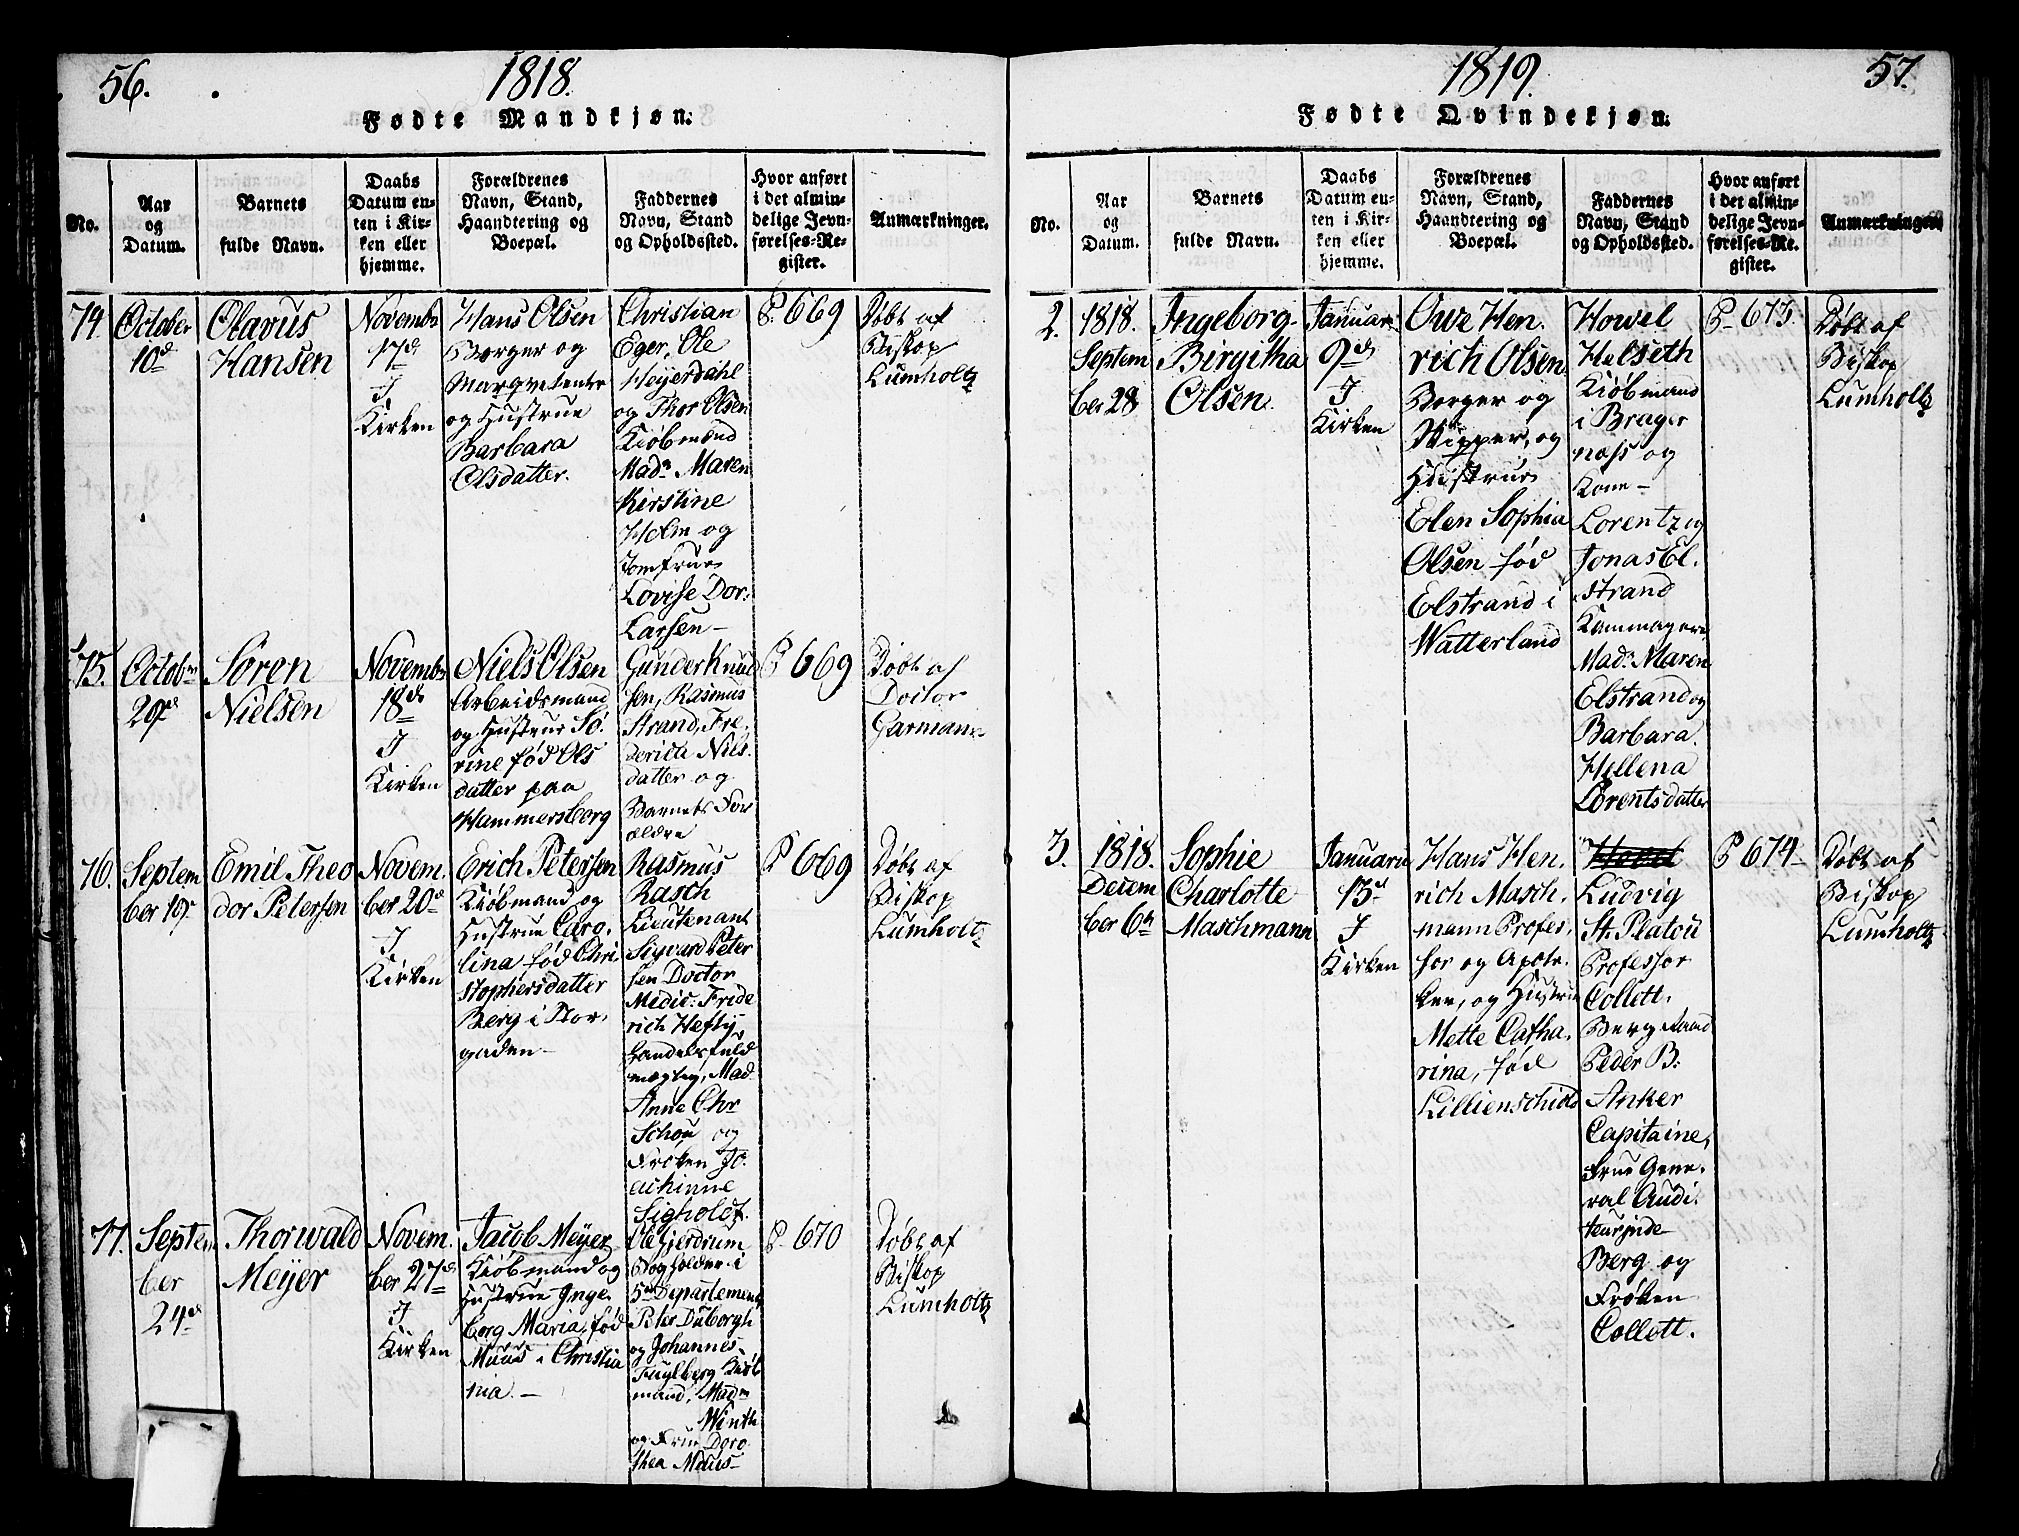 56.
1818.
Fødte Mandkjøn.
No.
Aar
og
Datum.
Barnets
fulde Navn.
Daabs
Datum en-
ten i Kir-
ken eller
hjemme.
Forældrenes
Navn, Stand,
Haandtering og
Boepæl.
Faddernes
Navn, Stand
og Opholdssted.
Hvor anført
i det almin-
delige Jevn-
førelses-Re-
gister.
Anmærkninger.
74.
October
10d
Olavus
Hansen
Novembr
17d
I
Kirken
Hans Olsen
Borger og
Marqvetenter
og Hustrue
Barbara
Olsdatter.
Christian
Eger, Ole
Heyerdahl
og Thor Olsen
Kiøbmænd
Madm Maren
Kirstine
Holm og
Jomfrue
Lovise Dor.
Larsen -
P. 669
Døbt af
Biskop
Lumholtz
75.
Octobr
29de
Søren
Nielsen
Novembr
18de
I
Kirken
Niels Olsen
Arbeidsmand
og Hustrue Sø.
rine fød Ols
datter paa
Hammersborg
Gunder Knud
sen, Rasmus
Strand, Fre.
derica Niels.
datter og
Barnets For
ældre
P 669
Døbt af
Doctor
Garmann
76.
Septem
ber 19de
Emil Theo
dor Petersen
Novem.
ber 20d
I
Kirken
Erich Petersen
Kiøbmand og
Hustrue Caro.
lina fød Chri
stophersdatter
Berg i Stor.
gaden -
Rasmus
Rasch
Lieutenant
Sigvard Peter
sen Doctor
Medic: Fride
rich Hefty
Handelsfuld
mægtig, Mad.
Anne Chr
Schou og
Frøken Jo.
achinne
Sigholdt.
P 669
Døbt af
Biskop
Lumholtz
77.
Septem
ber
24d
Thorwald
Meyer
Novem.
ber 27d
I
Kirken
Jacob Meyer
Kiøbmand og
Hustrue Inge.
borg Maria, fød
Muus i Christia
nia. -
Ole Gjerdrum
Bogholder i
5te Departement
Peter Duborgh
og Johannes
Fuglberg Kiøb
mand, Madm
Winth
og Frue Doro
thea Muus -
P. 670
Døbt af
Biskop
Lumholtz
1819.
57.
Fødte Qvindekjøn.
No.
Aar
og
Datum.
Barnets
fulde Navn.
Daabs
Datum en-
ten i Kir-
ken eller
hjemme.
Forældrenes
Navn, Stand,
Haandtering og
Boepæl.
Faddernes
Navn, Stand
og Opholdssted.
Hvor anført
i det almin-
delige Jevn-
førelses-Re-
gister.
Anmærkninger.
2.
1818.
Septem
ber 28
Ingeborg
Birgitha
Olsen.
Januari
9de
I
Kirken
Owe Hen.
rich Olsen
Borger og
Skipper, og
Hustrue
Elen Sophia
Olsen fød
Elstrand i
Watterland
Howel
Helseth
Kiøbmand
i Brager
næss og
Kone -
Lorentz og
Jonas El.
strand
Kammagere
Madm Maren
Elstrand og
Barbara
Hellena
Lorentsdatter
P- 673.
Døbt af
Biskop
Lumholtz
3.
1818.
Decem
ber 6te
Sophie
Charlotte
Maschmann
Januarii
13de
I
Kirken
Hans Hen.
rich Masch.
mann Profes.
sor og Apote.
ker, og Hustrue
Mette Catha.
rina, fød
Lillienschiold
Howel
Ludvig
St. Platou
Professor
Collett.
Bergraad
Peder B:
Anker
Capitaine,
Frue Gene.
ral Audi.
teurinde
Berg og
Frøken
Collett.
P 674-
Døbt af
Biskop
Lumholtz